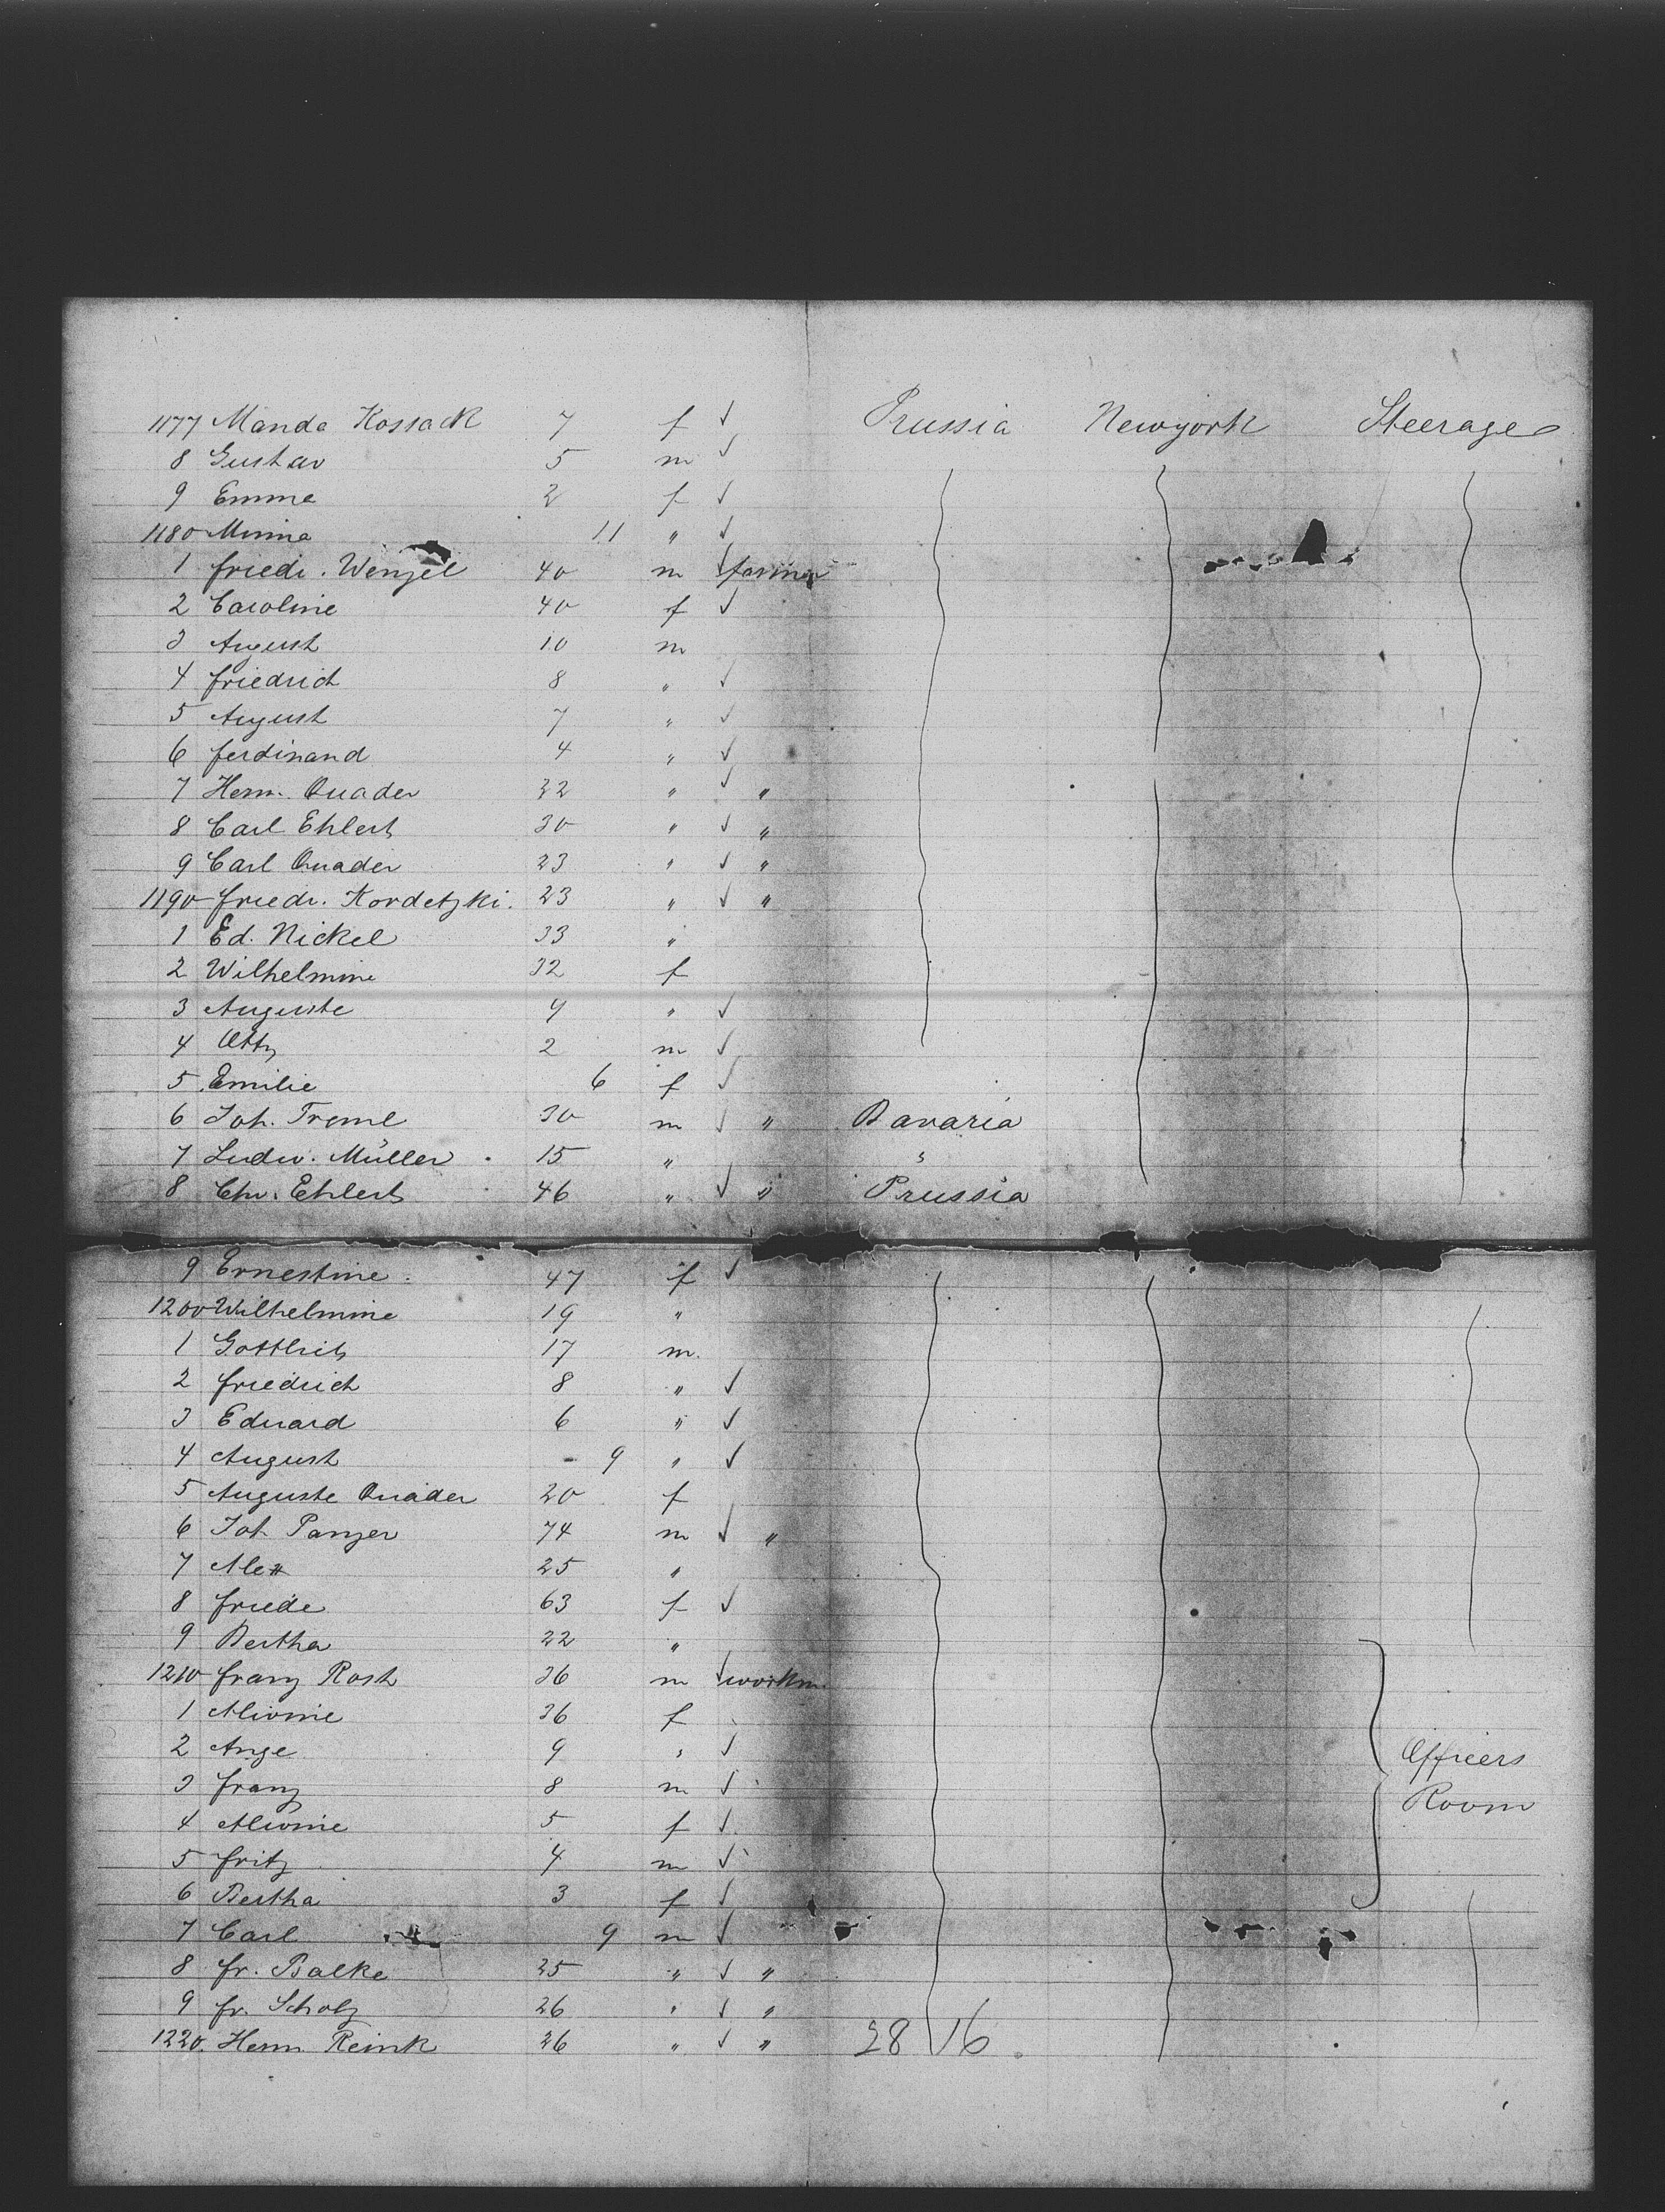 1177 Manda Kossack 7 f ✓ Prussia Newyork Steerage
8 Gustav 5 m ✓
9 Emma 2 f ✓
1180 Minna 11 " ✓
1 Friedr. Wenzel 40 m ✓ farmer
2 Caroline 40 f ✓
3 August 10 m
4 Friedrich 8 " ✓
5 August 7 " ✓
6 Ferdinand 4 " ✓
7 Herm. Quader 32 " ✓ "
8 Carl Ehlert 30 " ✓ "
9 Carl Quader 23 " ✓ "
1190 Friedr. Kordetzki. 23 " ✓ "
1 Ed. Nickel 33 "
2 Wilhelmine 32 f
3 Auguste 4 " ✓
4 Otto 2 m ✓
5 Emilie 6 f ✓
6 Joh. Treml 30 m ✓ " Bavaria
7 Ludw. Müller 15 " "
8 Chr. Ehlert 46 " ✓ " Prussia
9 Ernestine 47 f ✓
1200 Wilhelmine 19 "
1 Gottlieb 17 m.
2 Friedrich 8 " ✓
3 Eduard 6 " ✓
4 August - 9 " ✓
5 Auguste Quader 20 f
6 Joh Panzer 74 m ✓ "
7 Alex 25 "
8 Friede 63 f ✓
9 Bertha 22 "
1210 Franz Rost 36 m ✓ workm.
1 Alwine 36 f
2 Ange 9 " ✓ Officers
3 Franz 8 m ✓ Room
4 Alwine 5 f ✓
5 Fritz 4 m ✓
6 Bertha 3 f ✓
7 Carl 9 m ✓
8 Fr. Balke 25 " ✓ "
9 Fr. Scholz 26 " ✓ "
1220. Herm Reink 26 " ✓ " 28 16